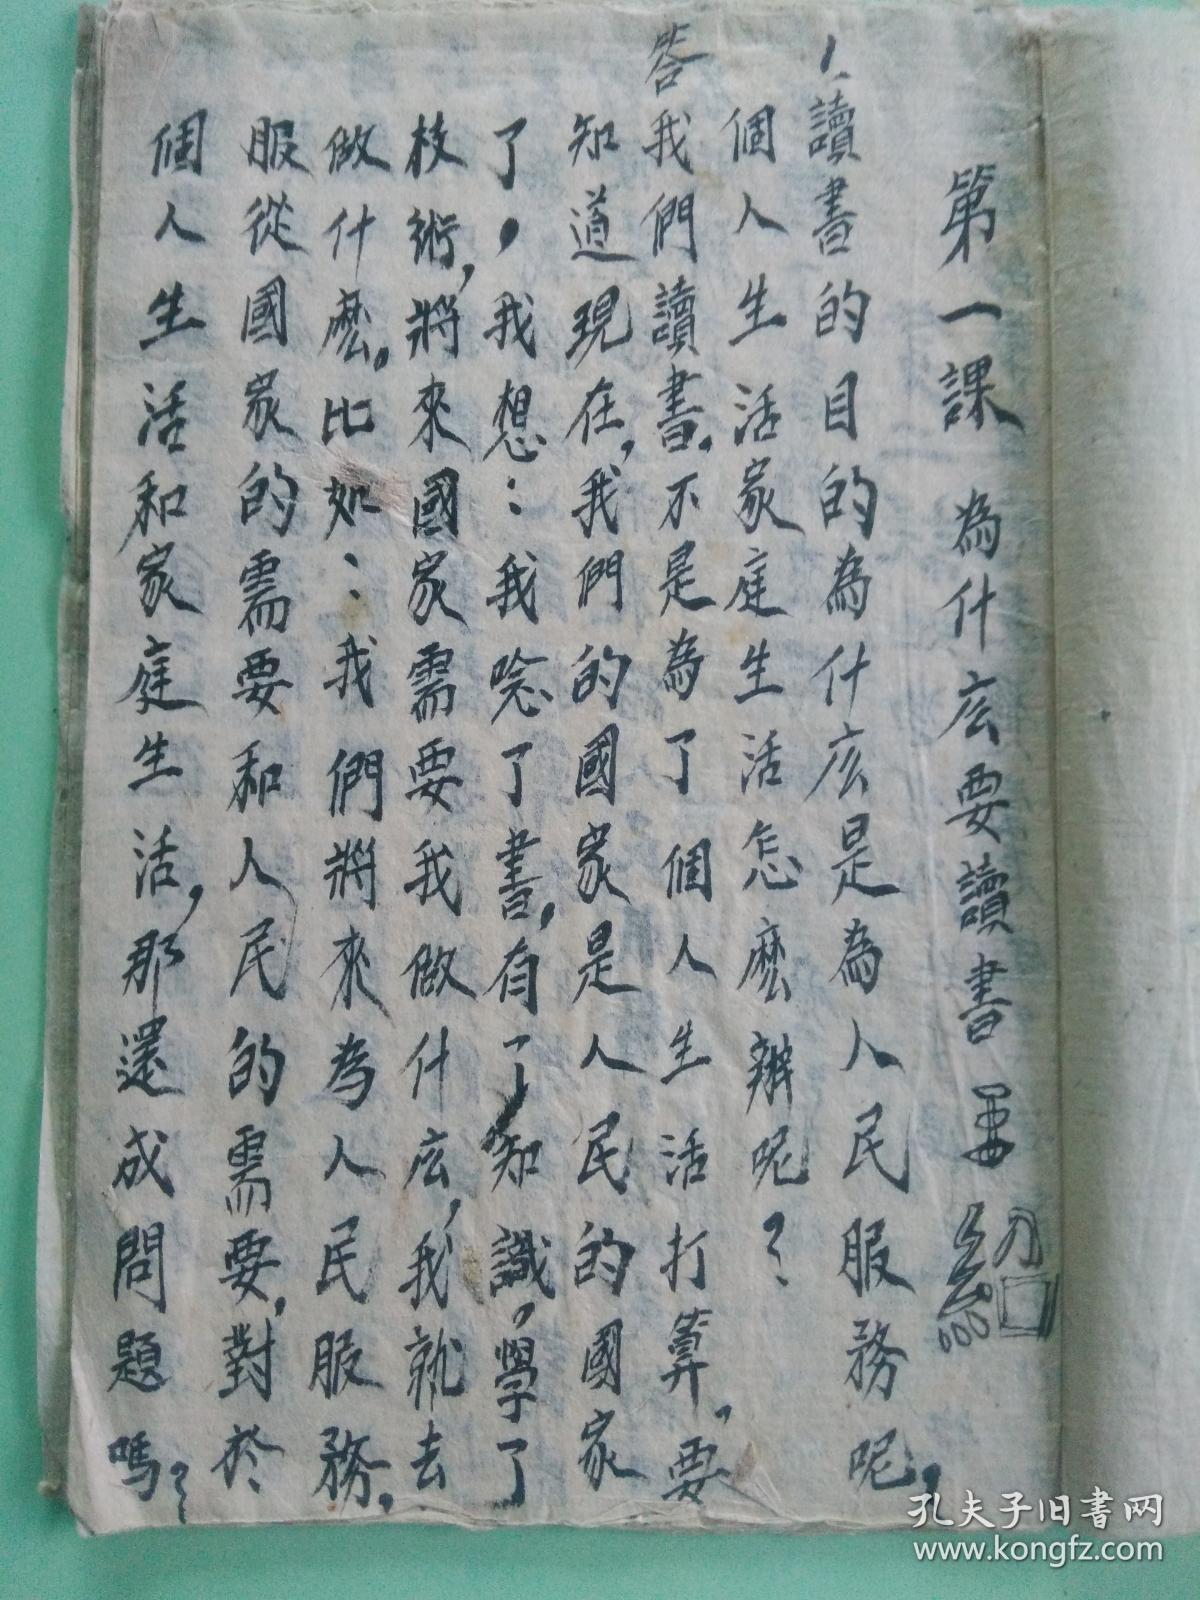 第一課 為什庅要讀書
1、讀書的目的為什庅是為人民服務呢，
個人生活家庭生活怎麽辦呢？
答我們讀書，不是為了個人生活打算，要
知道現在，我們的國家是人民的國家
了，我想：我唸了書，有了知識，學了
技術，將來國家需要我做什庅，我就去
做什麽，比如：我們將來為人民服務，
服從國家的需要和人民的需要，對於
個人生活和家庭生活，那還成問題嗎？
孔夫子旧书网
www.kongfz.com